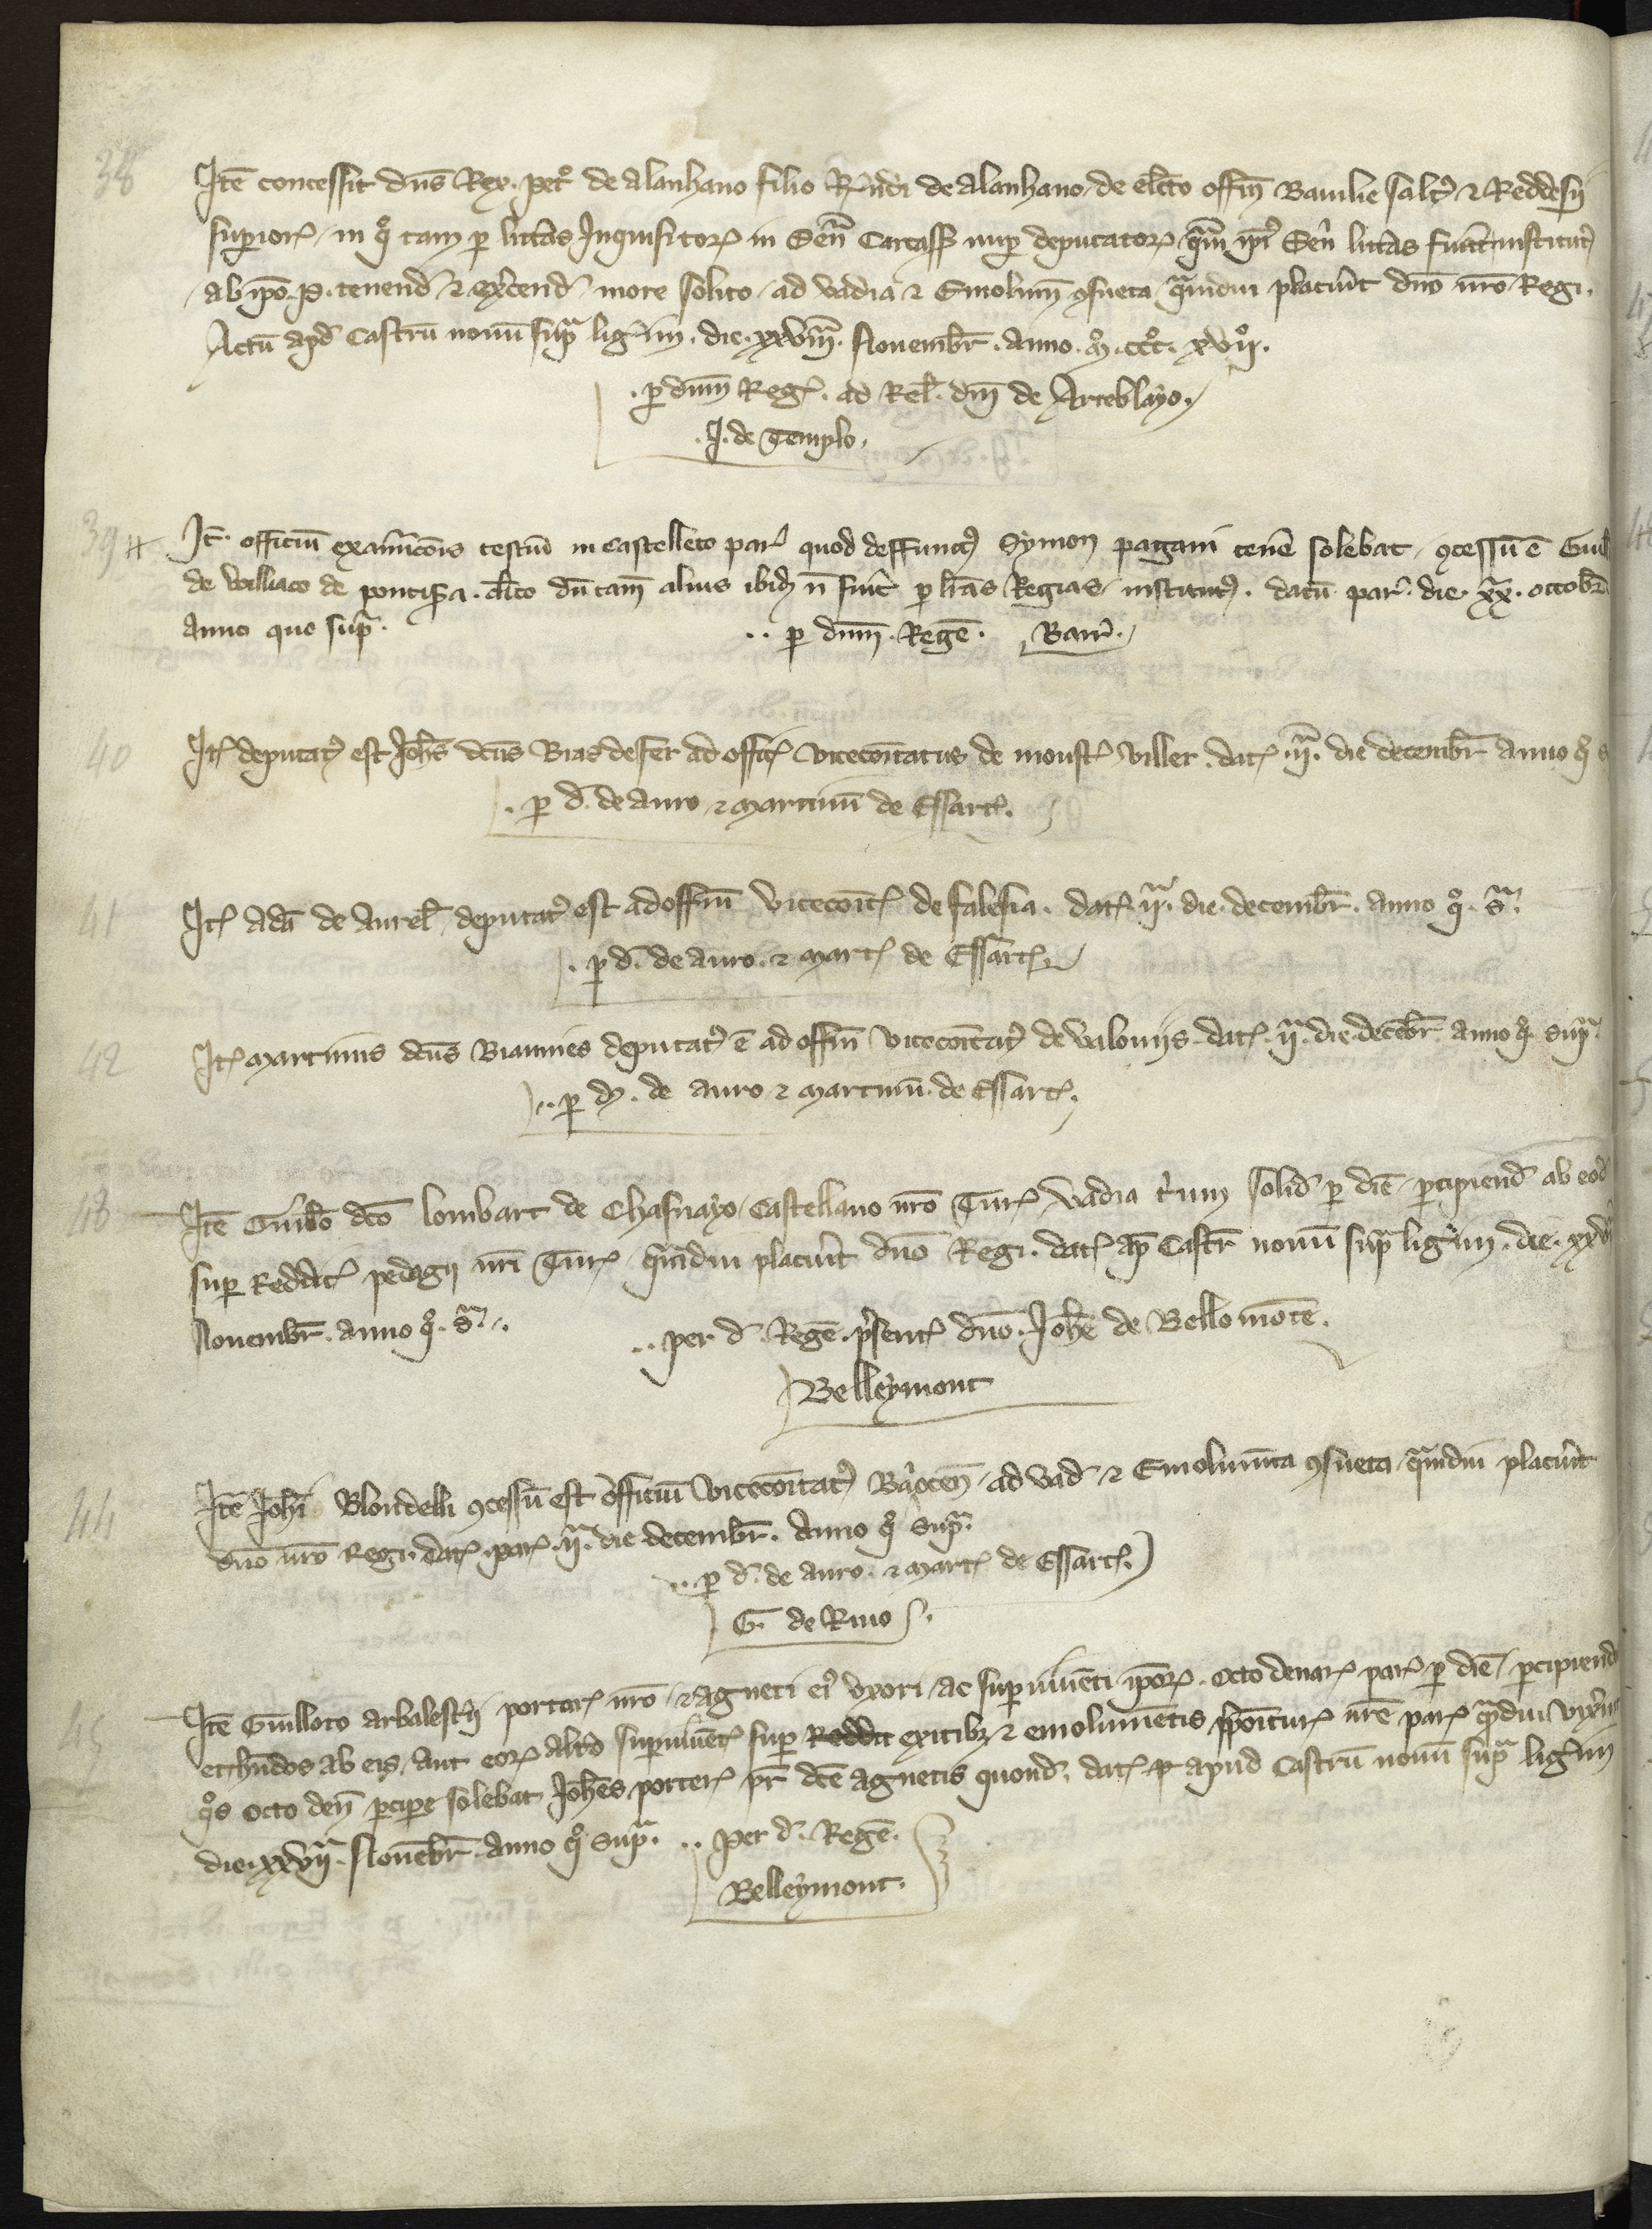 38
Itē concessit dn̄s Rex. Petº de Alanhano filio R̄ndi de Alanhano, de Elc̄to offm̄ Bauilie salt⁹ & Reddesii
superiorꝝ, in qº tam ꝑ litt̄as Inquisitorꝝ in Sen̄ Carcass̄ nuꝑ deputatorꝝ qᵃm ip̄i⁹ Sen̄ litt̄as fuit institut⁹
ab ip̄o .P. tenend̄ & ex̄cend̄ more solito, ad vadia & Emolum̄ ꝯsueta qᵃmdiu placūit dn̄o nr̄o Regi.
Actū apd̄ Castrū nouū supᵃ liḡim. die. xxviiiᵃ. Nouembr̄. anno. mº. cccº. xviiº.
. ꝑ dnm̄ Regē. ad Rel̄. dn̄i de Arreblayo.
.J. de Templo.
39
It̄. officiū examīacōis testiū in Castelleto par̄ quod deffunct⁹ Symon pagani tenēe solebat, ꝯcessū ē Guill̄
de Valliaco de pontisara. cl̄ico dū tam̄ alius ibid̄ n̄ fuīt ꝑ lr̄as Regias institut⁹. datū par̄. die. xxᵃ. octobr̄
anno quo supᵃ.
.. ꝑ dnm̄. Regē. Barr̄.
40
Itꝭ deputat⁹ est Joh̄s dc̄us Bras de fer ad officꝭ vicecōitatus de moustꝭ viller. datꝭ. iiᵃ. die decembr̄ anno qº s
. ꝑ d̄. de auro & Martinū de Essartꝭ.
41
Itꝭ Adā de Aurel̄. deputat⁹ est ad offm̄ vicecōitꝭ de falesia. datꝭ iiᵃ. die. decembr̄. anno qº. sᵃ.
. ꝑ d̄. de auro. & Martꝭ de Essartꝭ.
42
Itꝭ Martinus dc̄us Biaumes deputat⁹ ē ad offm̄ vicecōitat⁹ de Valoniis. datꝭ. iiᵃ. die. decēbr̄ anno qº supᵃ.
.. ꝑ d̄. de auro & Martinū. de Essartꝭ.
43
Itē Guill̄o dc̄o lombart de Chasnayo, Castellano nr̄o Turꝭ vadia t̄um solid̄ ꝑ diē, ꝑcipiend̄ ab eod̄
suꝑ Redditꝭ pedagii nr̄i Turꝭ, qᵃmdiu placūit dn̄o Regi. datꝭ ap̄ Castr̄ nouū supᵃ liḡim. die. xxv
Nouembr̄. anno qº. sᵃ..
.. per d̄. Regē. p̄sentꝭ dn̄o. Joh̄e de Bellomōte.
Belleymont
44
Itē Joh̄i Blondelli ꝯcessū est officiū vicecōitat⁹ Baȳocen̄, ad vad̄ & Emolumn̄ta ꝯsueta, qᵃmdiu placūit
dn̄o nr̄o Regi. datꝭ. parꝭ. iiᵃ. die decembr̄. anno qº supᵃ.
.. ꝑ d̄. de auro. & Martꝭ de Essartꝭ.
G. de Riuo.
45
Itē Guilloto arbalest̄ii portarꝭ nr̄o, & Agneti ei⁹ vxori, ac suꝑuiuēti ip̄orꝝ. octo denarꝭ parꝭ ꝑ diē, ꝑcipiend̄
et hn̄dos ab eis, aut eorꝝ alt̄o suꝑuiuētꝭ suꝑ Reddit exitibꝫ & emolumētis p̄poīturꝭ nr̄e parꝭ qᵃmdiu vix̄int
qºs octo den̄ ꝑcipe solebat Joh̄es porterꝭ pr̄ dc̄e Agnetis quond̄. datꝭ p apud Castrū nouū supᵃ liḡim
die. xxviiᵃ. Nouēbr̄. anno qº supᵃ. .. per d̄. Regē.
Belleymont.